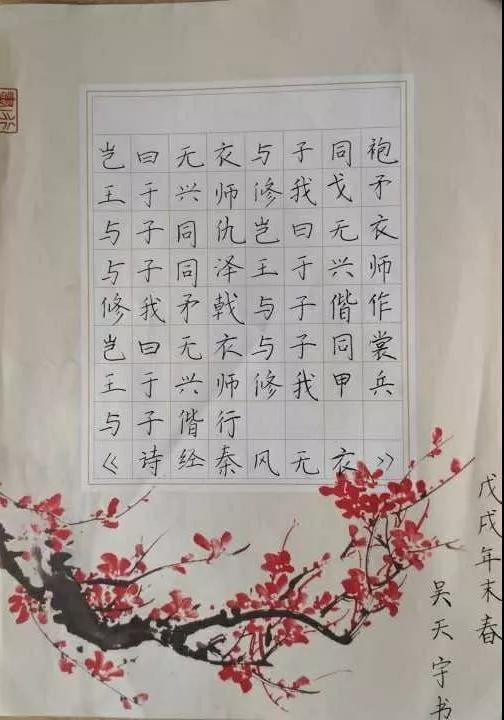 岂曰无衣与子同袍
王于兴师修我戈矛
与子同仇岂曰无衣
与子同泽王于兴师
修我矛戟与子偕作
岂曰无衣与子同裳
王于兴师修我甲兵
与子偕行
《诗经秦风无衣》
戊戌年末春
吴天宇书